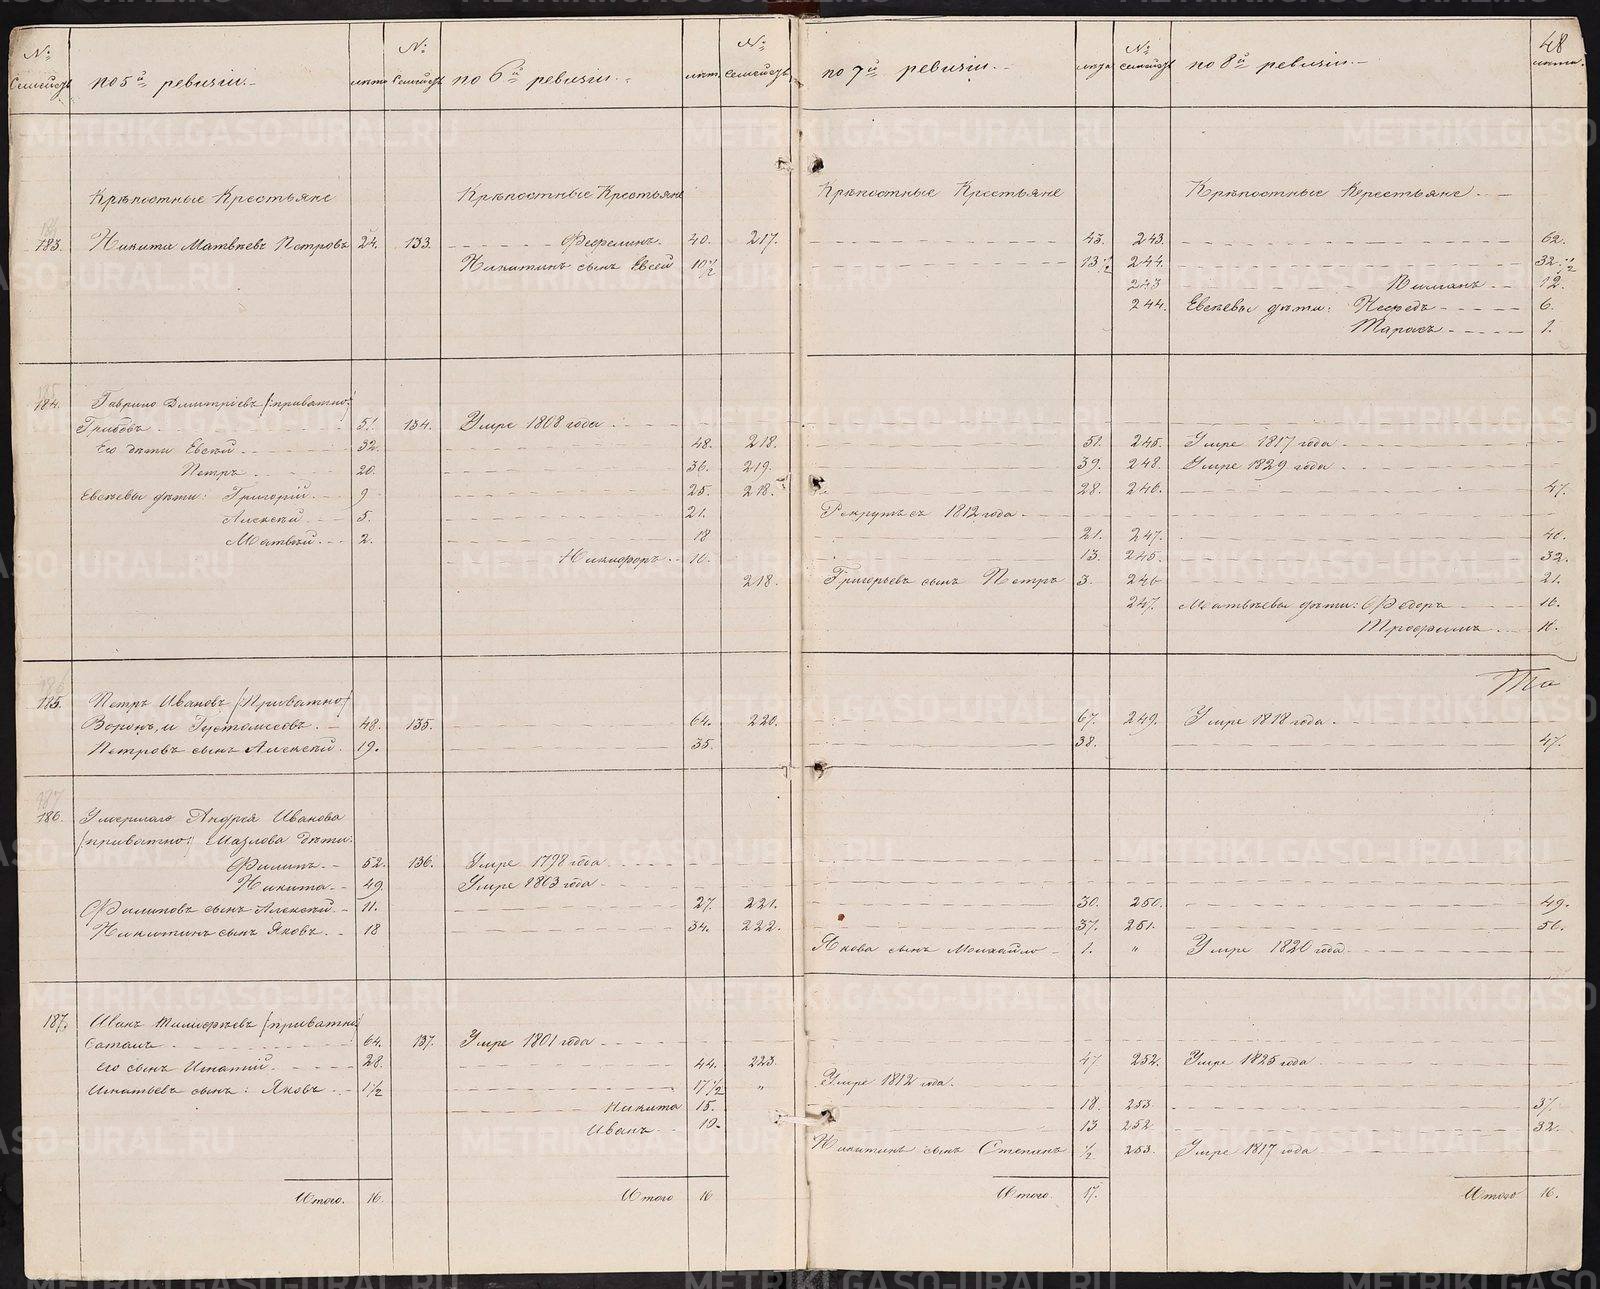 № Семействъ по 5й ревизiи лѣта № Семействъ по 6й ревизiи лѣта № семействъ по 7й ревизiи лѣта № семействъ по 8й ревизiи 48 лѣта
Крѣпостные Крестьяне Крѣпостные Крестьяне Крѣпостные Крестьяне Крѣпостные Крестьяне
183. Никита Матвѣевъ Петровъ 24. 133. 40. 217. 43. 243. 62.
Никитинъ сынъ Евсей 10½ 13½ 244. 32.½
243 12.
244. Евсѣевы дѣти: 6.
Тарасъ 1.
184. Гаврило Дмитрiевъ /:приватно:/
Грибовъ 51. 134. Умре 1808 года
Его дѣти Евсѣй 32. 48. 218. 51. 245. Умре 1817 года
Петръ 20. 36. 219. 39. 248. Умре 1829 года
Евсѣевы дѣти: Григорiй 9 25. 218. 28. 246. 47.
Алексѣй 5. 21. Рекрутъ съ 1812 года
Матвѣй 2. 18 21. 247. 40.
Никифоръ 10. 13. 245. 32.
218. Григорьевъ сынъ Петръ 3. 246 21.
247. Матвѣевы дѣти: Ѳедоръ 16.
Трофимъ
185. Петръ Ивановъ /Приватно/ То
Воронъ, и Густомѣсовъ 48. 135. 64. 220. 67. 249. Умре 1818 года
Петровъ сынъ Алексѣй 19. 35. 38. 47.
186. Умершаго Андрея Иванова
/приватно:/ Мазлова дѣти:
Филипъ 52. 136. Умре 1798 года
Никита 49 Умре 1803 года
Филиповъ сынъ Алексѣй 11. 27. 221. 30. 250. 49.
Никитинъ сынъ Яковъ 18 34. 222. 37. 251. 56.
Якова сынъ Михайло 1. " Умре 1820 года
187. Иванъ Тимофѣевъ /приватно/
64. 137. Умре 1801 года
Его сынъ Игнатiй 28. 44. 223. 47 252. Умре 1825 года
Игнатьевъ сынъ: Яковъ 1½ 17½ " Умре 1812 года.
Никита 15. 18. 253. 37.
Иванъ 10. 13 252. 32.
Никитинъ сынъ Степанъ ½ 253. Умре 1817 года
Итого. 16. Итого 16 Итого. 17. Итого 16.
METRIKI.GASO-URAL.RU